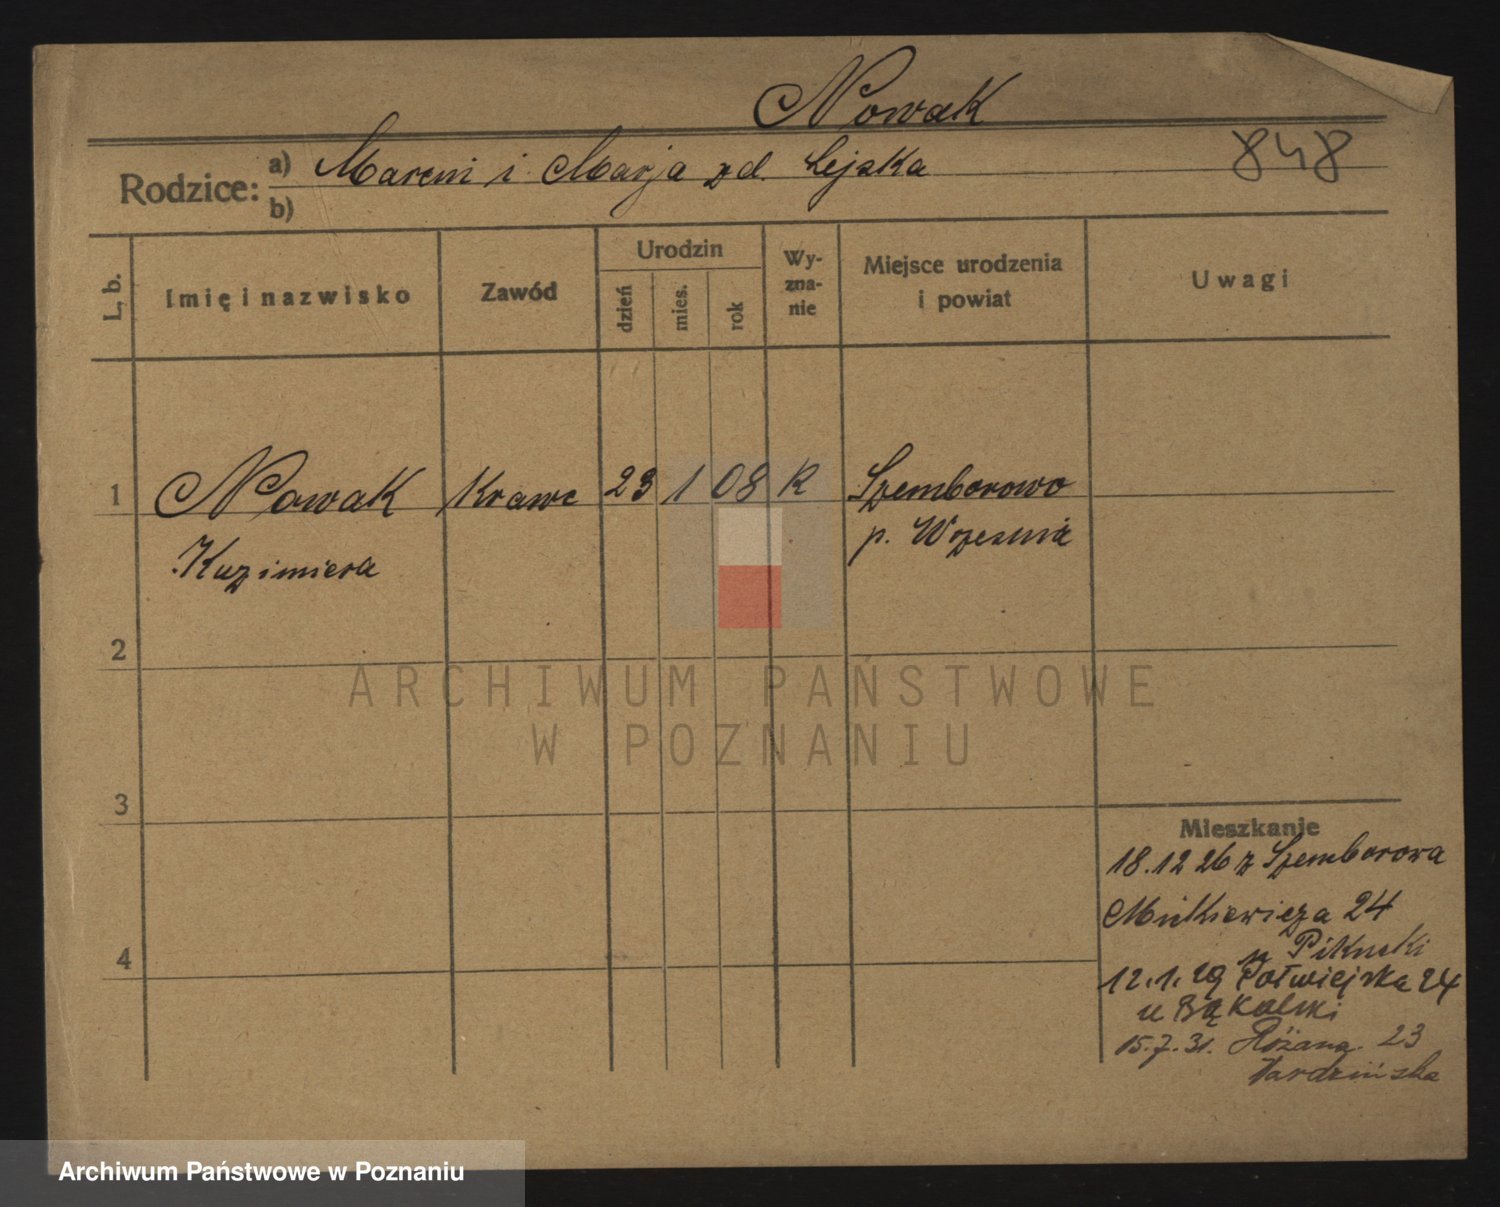 Nowak
848
Rodzice: a) Marcin i Marja zd. Lejska
b)
L. b.
Imię i nazwisko
Zawód
Urodzin
dzień
mies.
rok
Wy-
zna-
nie
Miejsce urodzenia
i powiat
Uwagi
1 Nowak Krawc 23 1 08 R Szemborowo
Kazimiera p. Września
2
ARCHIWUM PAŃSTWOWE
W POZNANIU
3
Mieszkanie
18.12 26 z Szemborowa
Mickiewicza 24
u
4
12.1.29 Półwiejska 24
u Bąkalski
15.7.31. Różana 23
Archiwum Państwowe w Poznaniu